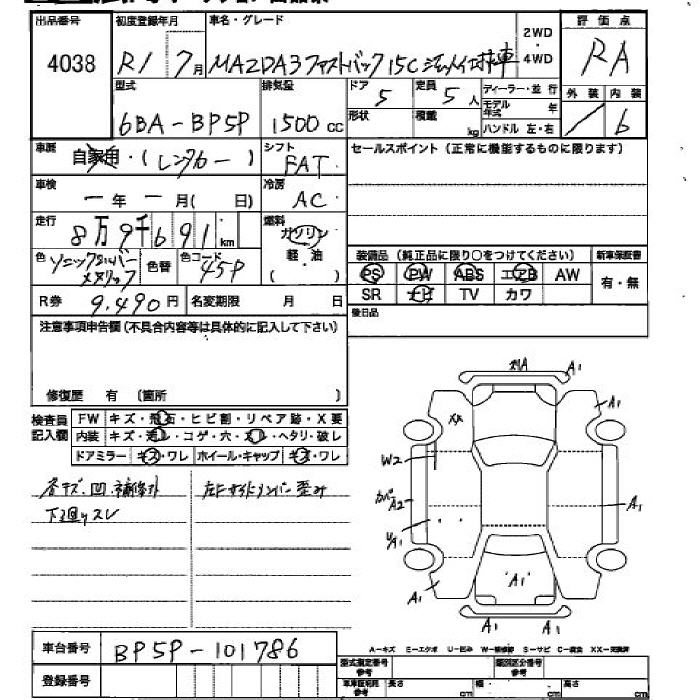 出品番号 初度登録年月 車名・グレード 2WD ・ 4WD 評価点
4038 R1 7月 MAZDA3ファストバック 15C RA
型式 排気量 ドア 定員 ディーラー・並行 外装 内装
6BA-BP5P 1500cc 5 5人 モデル年式 年 / 6
形状 積載 kg ハンドル 左・右
車歴 自家用・(レンタカー) シフト FAT セールスポイント(正常に機能するものに限ります)
車検 ー年ー月( 日) 冷房 AC
走行 8万9千691km 燃料 ガソリン
色 ソニックシルバーメタリック 色替 色コード 45P 軽・油 ( ) 装備品(純正品に限り○をつけてください) 新車保証書
PS PW ABS エアB AW 有・無
R券 9,490円 名変期限 月 日 SR ナビ TV カワ
注意事項申告欄(不具合内容等は具体的に記入して下さい) 後日品
修復歴 有 〔箇所 〕
検査員記入欄 FW キズ・飛石・ヒビ割・リペア跡・X要
内装 キズ・汚レ・コゲ・穴・スレ・ヘタリ・破レ
ドアミラー キズ・ワレ ホイール・キャップ キズ・ワレ
各キズ 凹 補修跡
下廻りスレ
左Fサイドメンバー歪み
A1
A1
XX
W2
カバーA2
A1
U A1
A1
A1
A1
A1 A1
A-キズ E-エクボ U-凹み W-補修跡 S-サビ C-腐食 XX-交換済
車台番号 BP5P-101786
型式指定番号 参考 類別区分番号 参考
登録番号
車車証明書 参考 長さ cm 幅 cm 高さ cm